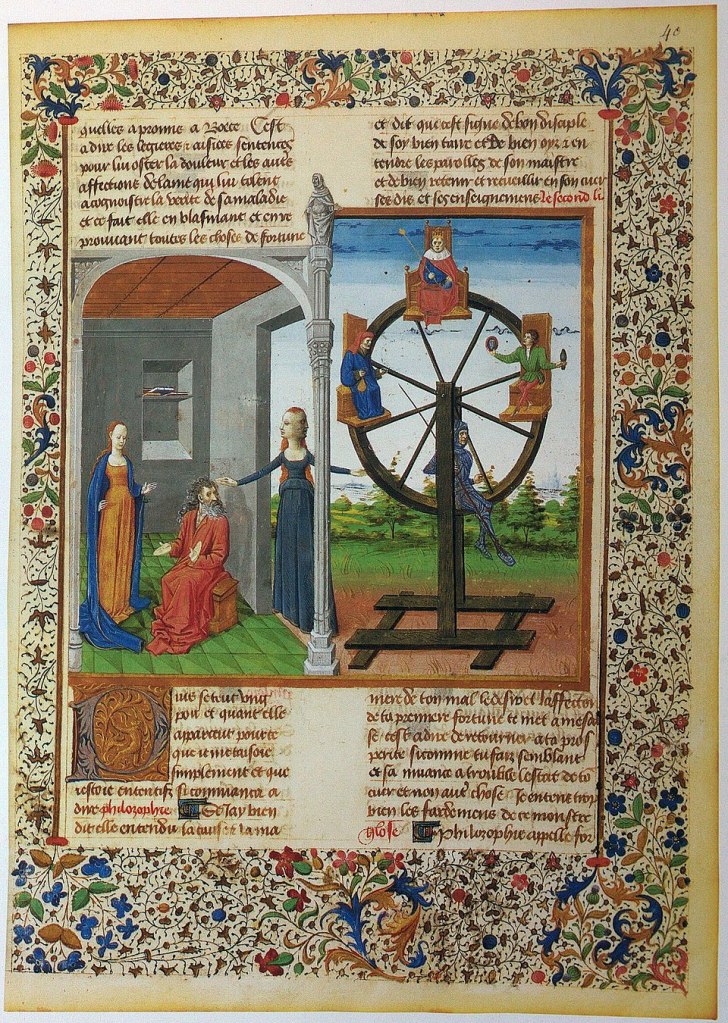 40
quelles a pronne a Boece Cest
a dire les legieres & aisiees sentences
pour lui oster la douleur et les
affections de lame qui lui tolent
a cognoistre la verite de sa maladie
et ce fait elle en blasmant et en re
prouuant toutes les choses de fortune
et dit que cest signe de bon disciple
de soy bien taire et de bien oyr & en
tendre les parolles de son maistre
et de bien retenir et recueillir en son cuer
ses dis et ses enseignemens le second li
Puis se teut ung
pou et quant elle
apparceut pour ce
que ie me taisoie
simplement et que
iestoie ententif si commanca a
dire philozophie Se Jay bien
dit elle entendu la cause & la ma
niere de ton mal le desir et laffection
de ta premiere fortune te met a mesai
se cest a dire de retourner a ta pros
perite si comme tu fais semblant
et sa muance a trouble lestat de to
cuer et non chose Je entens trop
bien les fardemens de ce monstre
Glose Philozophie appelle for